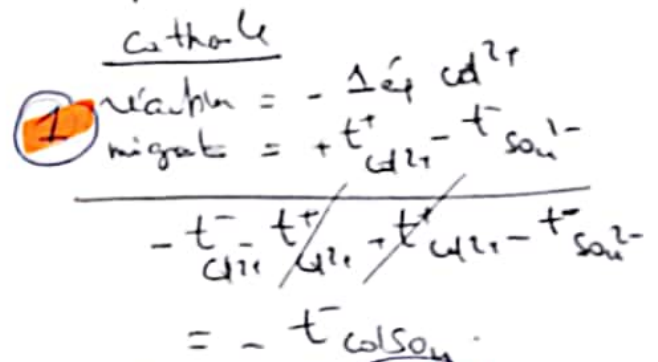 Cathode
1 réaction = - 1 éq Cd²⁺
migrat = + t⁺ Cd²⁺ - t⁻ SO₄²⁻
- t⁻ Cd²⁺ t⁺ Cd²⁺ + t⁺ Cd²⁺ - t⁻ SO₄²⁻
= - t⁻ CdSO₄.